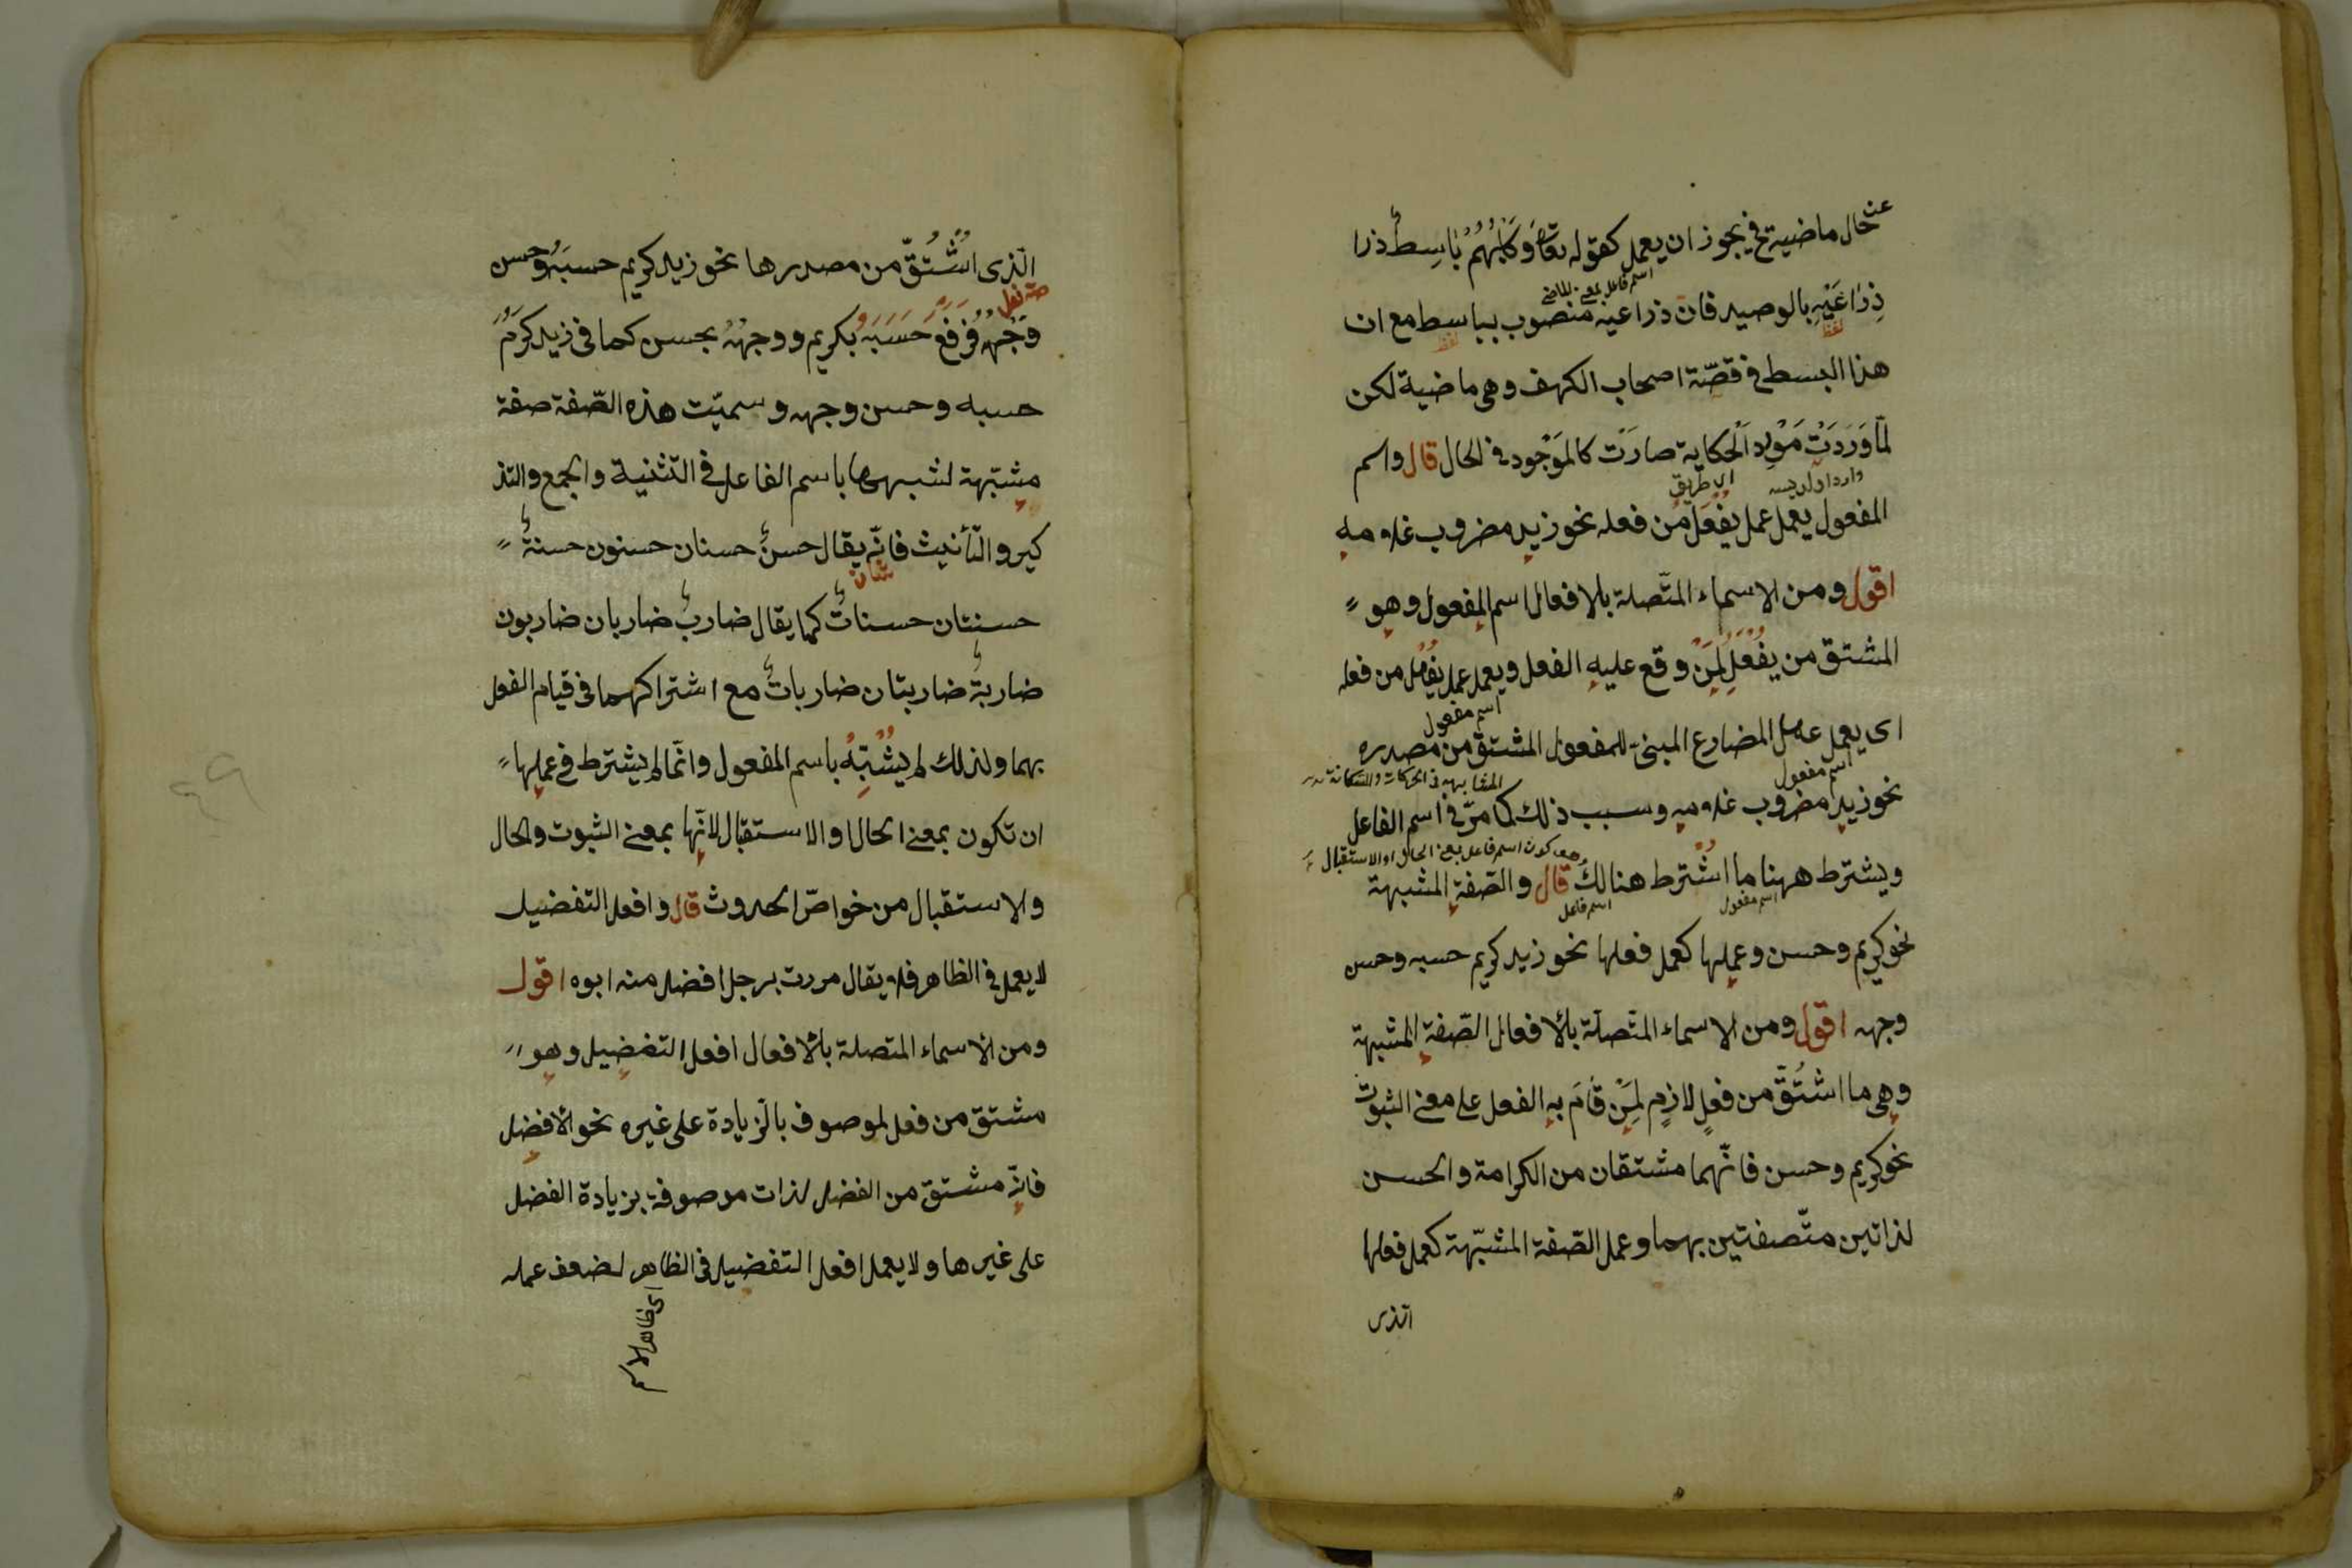 عن حال ماضية فح يجوز ان يعمل كقوله تعا وَكَلْبُهُمْ بَاسِطٌ ذرا
اسم فاعل بمعنى الماضى
ذِرَاعَيْهِ بالوصيد فان ذراعيه منصوب بباسط مع ان
لفظ لفظ
هذا البسط فى قصّة اصحاب الكهف وهى ماضية لكن
لمّا وَرَدَتْ مَوْرِد الْحكاية صارَت كالمَوْجُود فى الحال قال واسم
اى طريق
المفعول يعمل عمل يُفْعَلُ من فعله نحو زيد مضروب غلامه
اقول ومن الاسماء المتّصلة بالافعال اسم المفعول وهو
المشتق من يُفْعَلُ لِمَنْ وقع عليه الفعل ويعمل عمل يُفْعَلُ من فعله
اسم مفعول
اى يعمل عمل المضارع المبنى للمفعول المشتقّ من مصدره
اسم مفعول
المشابهة فى الحركات والسكنات
نحو زيد مضروب غلامه وسبب ذلك كما مرّ فى اسم الفاعل
وهو كون اسم فاعل بمعنى الحال او الاستقبال
ويشترط ههنا ما اشْتُرط هنالكَ قال والصّفة المشبهة
اسم مفعول اسم فاعل
نحو كريم وحسن وعملها كعمل فعلها نحو زيد كريم حسبه وحسن
وجهه اقول ومن الاسماء المتّصلة بالافعال الصّفة المشبهة
وهى ما اشتُقّ من فعلٍ لازمٍ لِمَنْ قَامَ بِه الفعل على معنى الثبوت
نحو كريم وحسن فانّهما مشتقان من الكرامة والحسن
لذاتين متّصفتين بهما وعمل الصّفة المشبّهة كعمل فعلها
الذى
الّذى اشْتُقّ من مصدرها نحو زيد كريم حسبَهُ وحسن
وَجْهُهُ فَرَفَعَ حَسَبَهُ بكريم ووجهُهُ بحسن كما فى زيد كرُمَ
حسبه وحسن وجهه وسميّت هذه الصّفة صفة
مشبّهة لشبهها باسم الفاعل فى التثنية والجمع والتذ
كير والتأنيث فانّه يقال حسنٌ حسنان حسنون حسنةٌ
حسنتان حسناتٌ كما يقال ضاربٌ ضاربان ضاربون
ضاربةٌ ضاربتان ضارباتٌ مع اشتراكهما فى قيام الفعل
بهما ولذلك لم يُشَبَّهْ باسم المفعول وانّما لم يشترط فى عملها
ان تكون بمعنى الحال او الاستقبال لانّها بمعنى الثبوت والحال
والاستقبال من خواصّ الحدوث قال وافعل التفضيل
لا يعمل فى الظاهر فلا يقال مررت برجل افضل منه ابوه اقول
ومن الاسماء المتصلة بالافعال افعل التفضيل وهو
مشتق من فعل لموصوف بالزيادة على غيره نحو الافضل
فانّه مشتقّ من الفضل لذات موصوفة بزيادة الفضل
على غيرها ولا يعمل افعل التفضيل فى الظاهر لضعف عمله